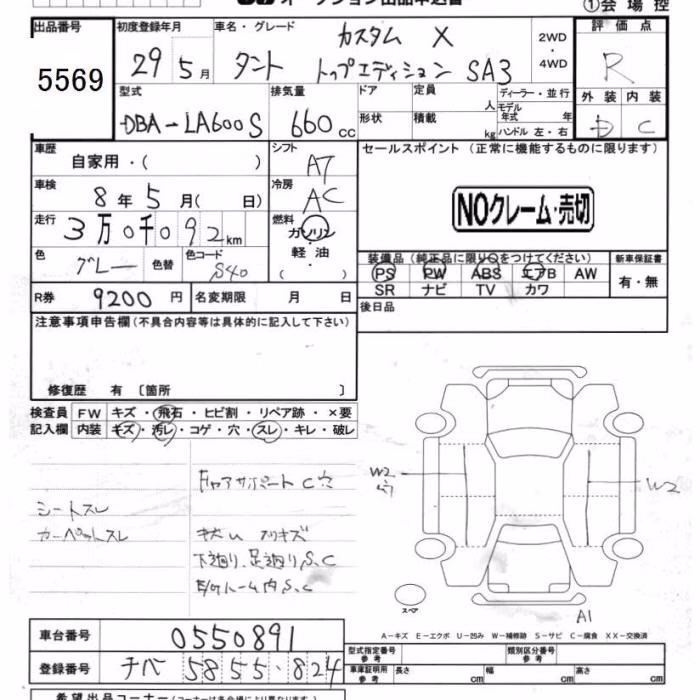 オークション出品申込書
①会場控
出品番号
5569
初度登録年月
29年5月
車名・グレード
タント カスタム X
トップエディション SA3
2WD
・
4WD
評価点
R
外装 内装
D C
型式
DBA-LA600S
排気量
660cc
ドア
定員
人
ディーラー・並行
モデル年式 年
形状
積載
kg
ハンドル 左・右
車歴
自家用・( )
シフト
AT
車検
8年5月( 日)
冷房
AC
走行
3万0千092km
燃料
ガソリン
軽油
・
色
グレー
色替
色コード
S40
R券
9200円
名変期限 月 日
セールスポイント(正常に機能するものに限ります)
NOクレーム・売切
装備品(純正品に限り○をつけてください)
PS PW ABS エアB AW
SR ナビ TV カワ
新車保証書
有・無
後日品
注意事項申告欄(不具合内容等は具体的に記入して下さい)
修復歴 有 〔箇所 〕
検査員
記入欄
FW キズ・飛石・ヒビ割・リペア跡・×要
内装 キズ・汚レ・コゲ・穴・スレ・キレ・破レ
シートスレ
カーペットスレ
コアサポート C穴
キズ凹 スリキズ
下廻り、足廻り S、C
E/Gルーム内 S、C
W2
W2
A1
スペア
A-キズ E-エクボ U-凹み W-補修跡 S-サビ C-腐食 XX-交換済
車台番号
0550891
登録番号
チバ 5855・824
型式指定番号
参考
類別区分番号
参考
車庫証明用
参考
長さ cm
幅 cm
高さ cm
希望出品コーナー